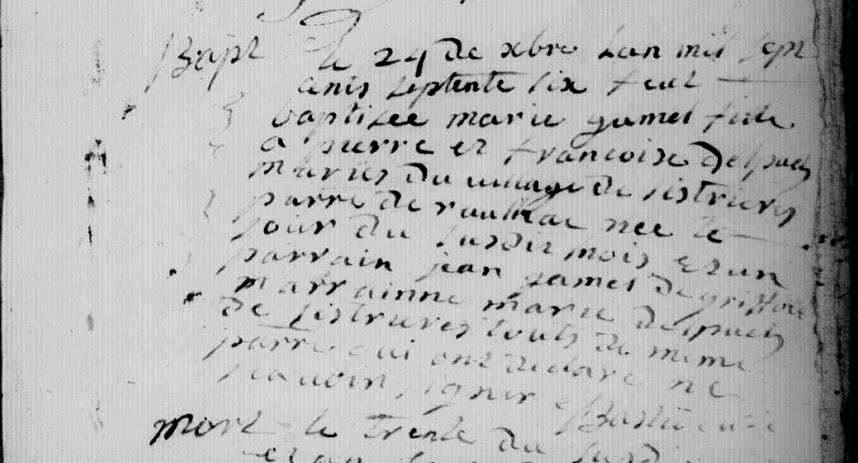 Bapt le 24 de xbre lan mil sept
cents septente six feut
baptisee marie gamel fille
a pierre et francoise delpuch
maries du village de sistrieres
parre de raulhac nee le
jour du susdit mois et an
parrain jean gamel de griffoul
marrainne marie delpuch
de sistrieres touts de meme
parre qui ont declare ne
scavoir signer
mort le trente du susdit
et an